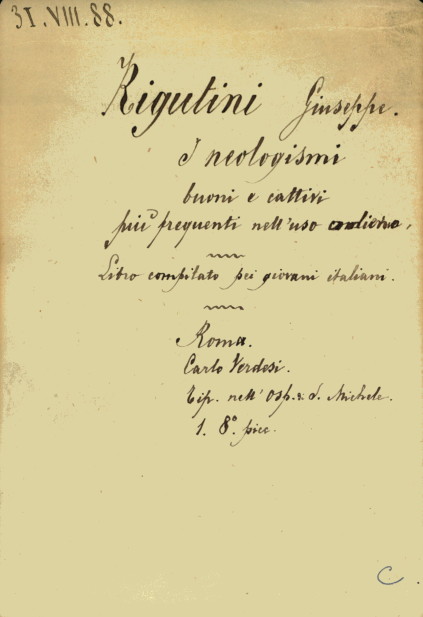 31.VIII.88.
Rigutini Giuseppe.
I neologismi
buoni e cattivi
più frequenti nell'uso odierno,
Libro compilato pei giovani italiani.
Roma.
Carlo Verdesi.
Tip. nell'Osp. di S. Michele.
1. 8.° picc.
C